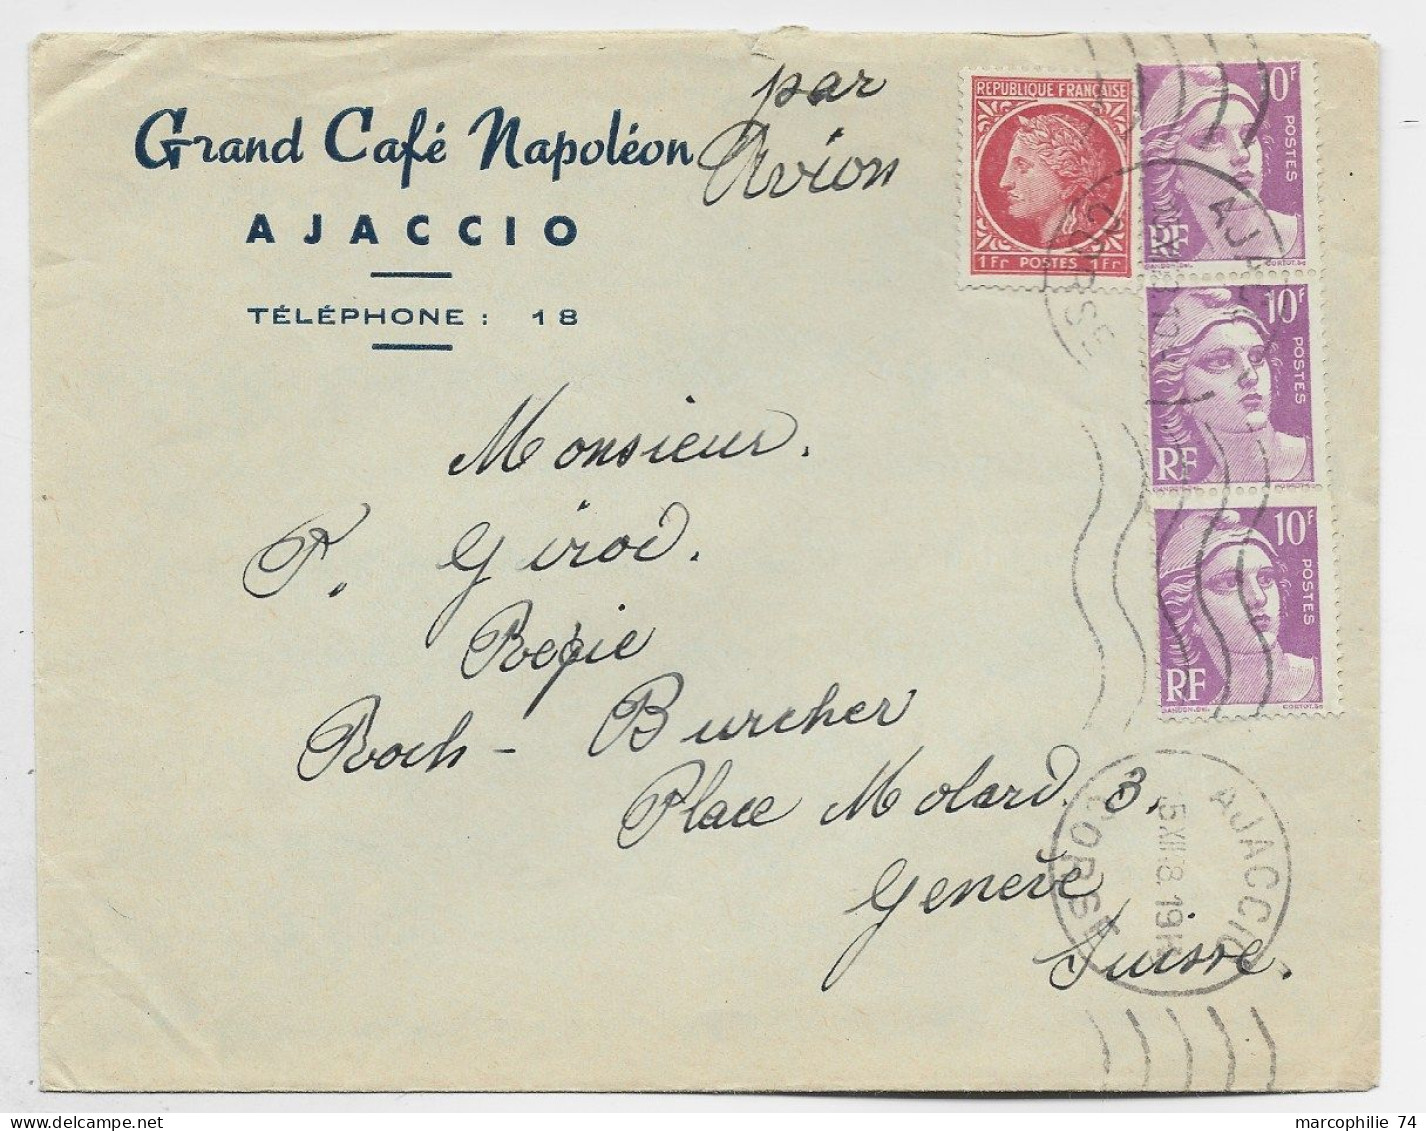 Grand Café Napoléon
AJACCIO
TÉLÉPHONE : 18
par
Avion
REPUBLIQUE FRANÇAISE
1Fr POSTES 1Fr
10F
POSTES
RF
10F
POSTES
RF
10F
POSTES
RF
AJACCIO
CORSE
Monsieur.
F. Girod.
Regie
Roch - Burcher
Place Molard. 3,
Genève
Suisse.
AJACCIO
5 XII 8. 19H
CORSE
marcophilie 74